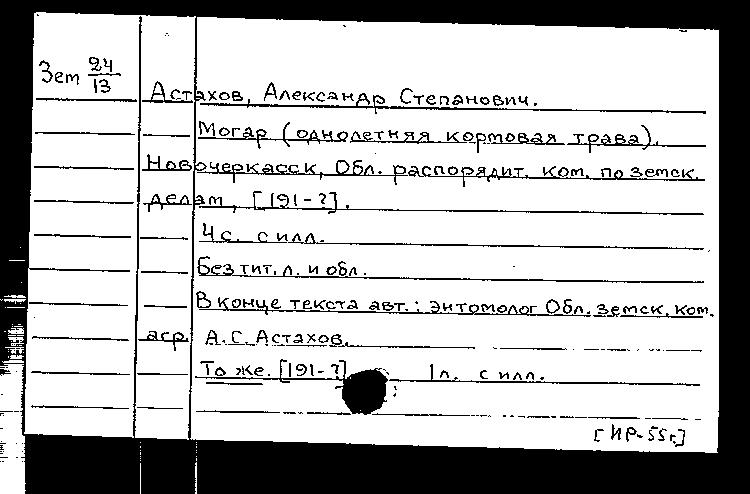 Зем 24/13
Астахов, Александр Степанович.
Могар (однолетняя кормовая трава).
Новочеркасск, Обл. распорядит. ком. по земск.
делам, [191-?].
4 с. с илл.
Без тит. л. и обл.
В конце текста авт.: энтомолог Обл. земск. ком.
аср. А.С. Астахов.
То же. [191-?] 1 л. с илл.
[ИР-55г.]